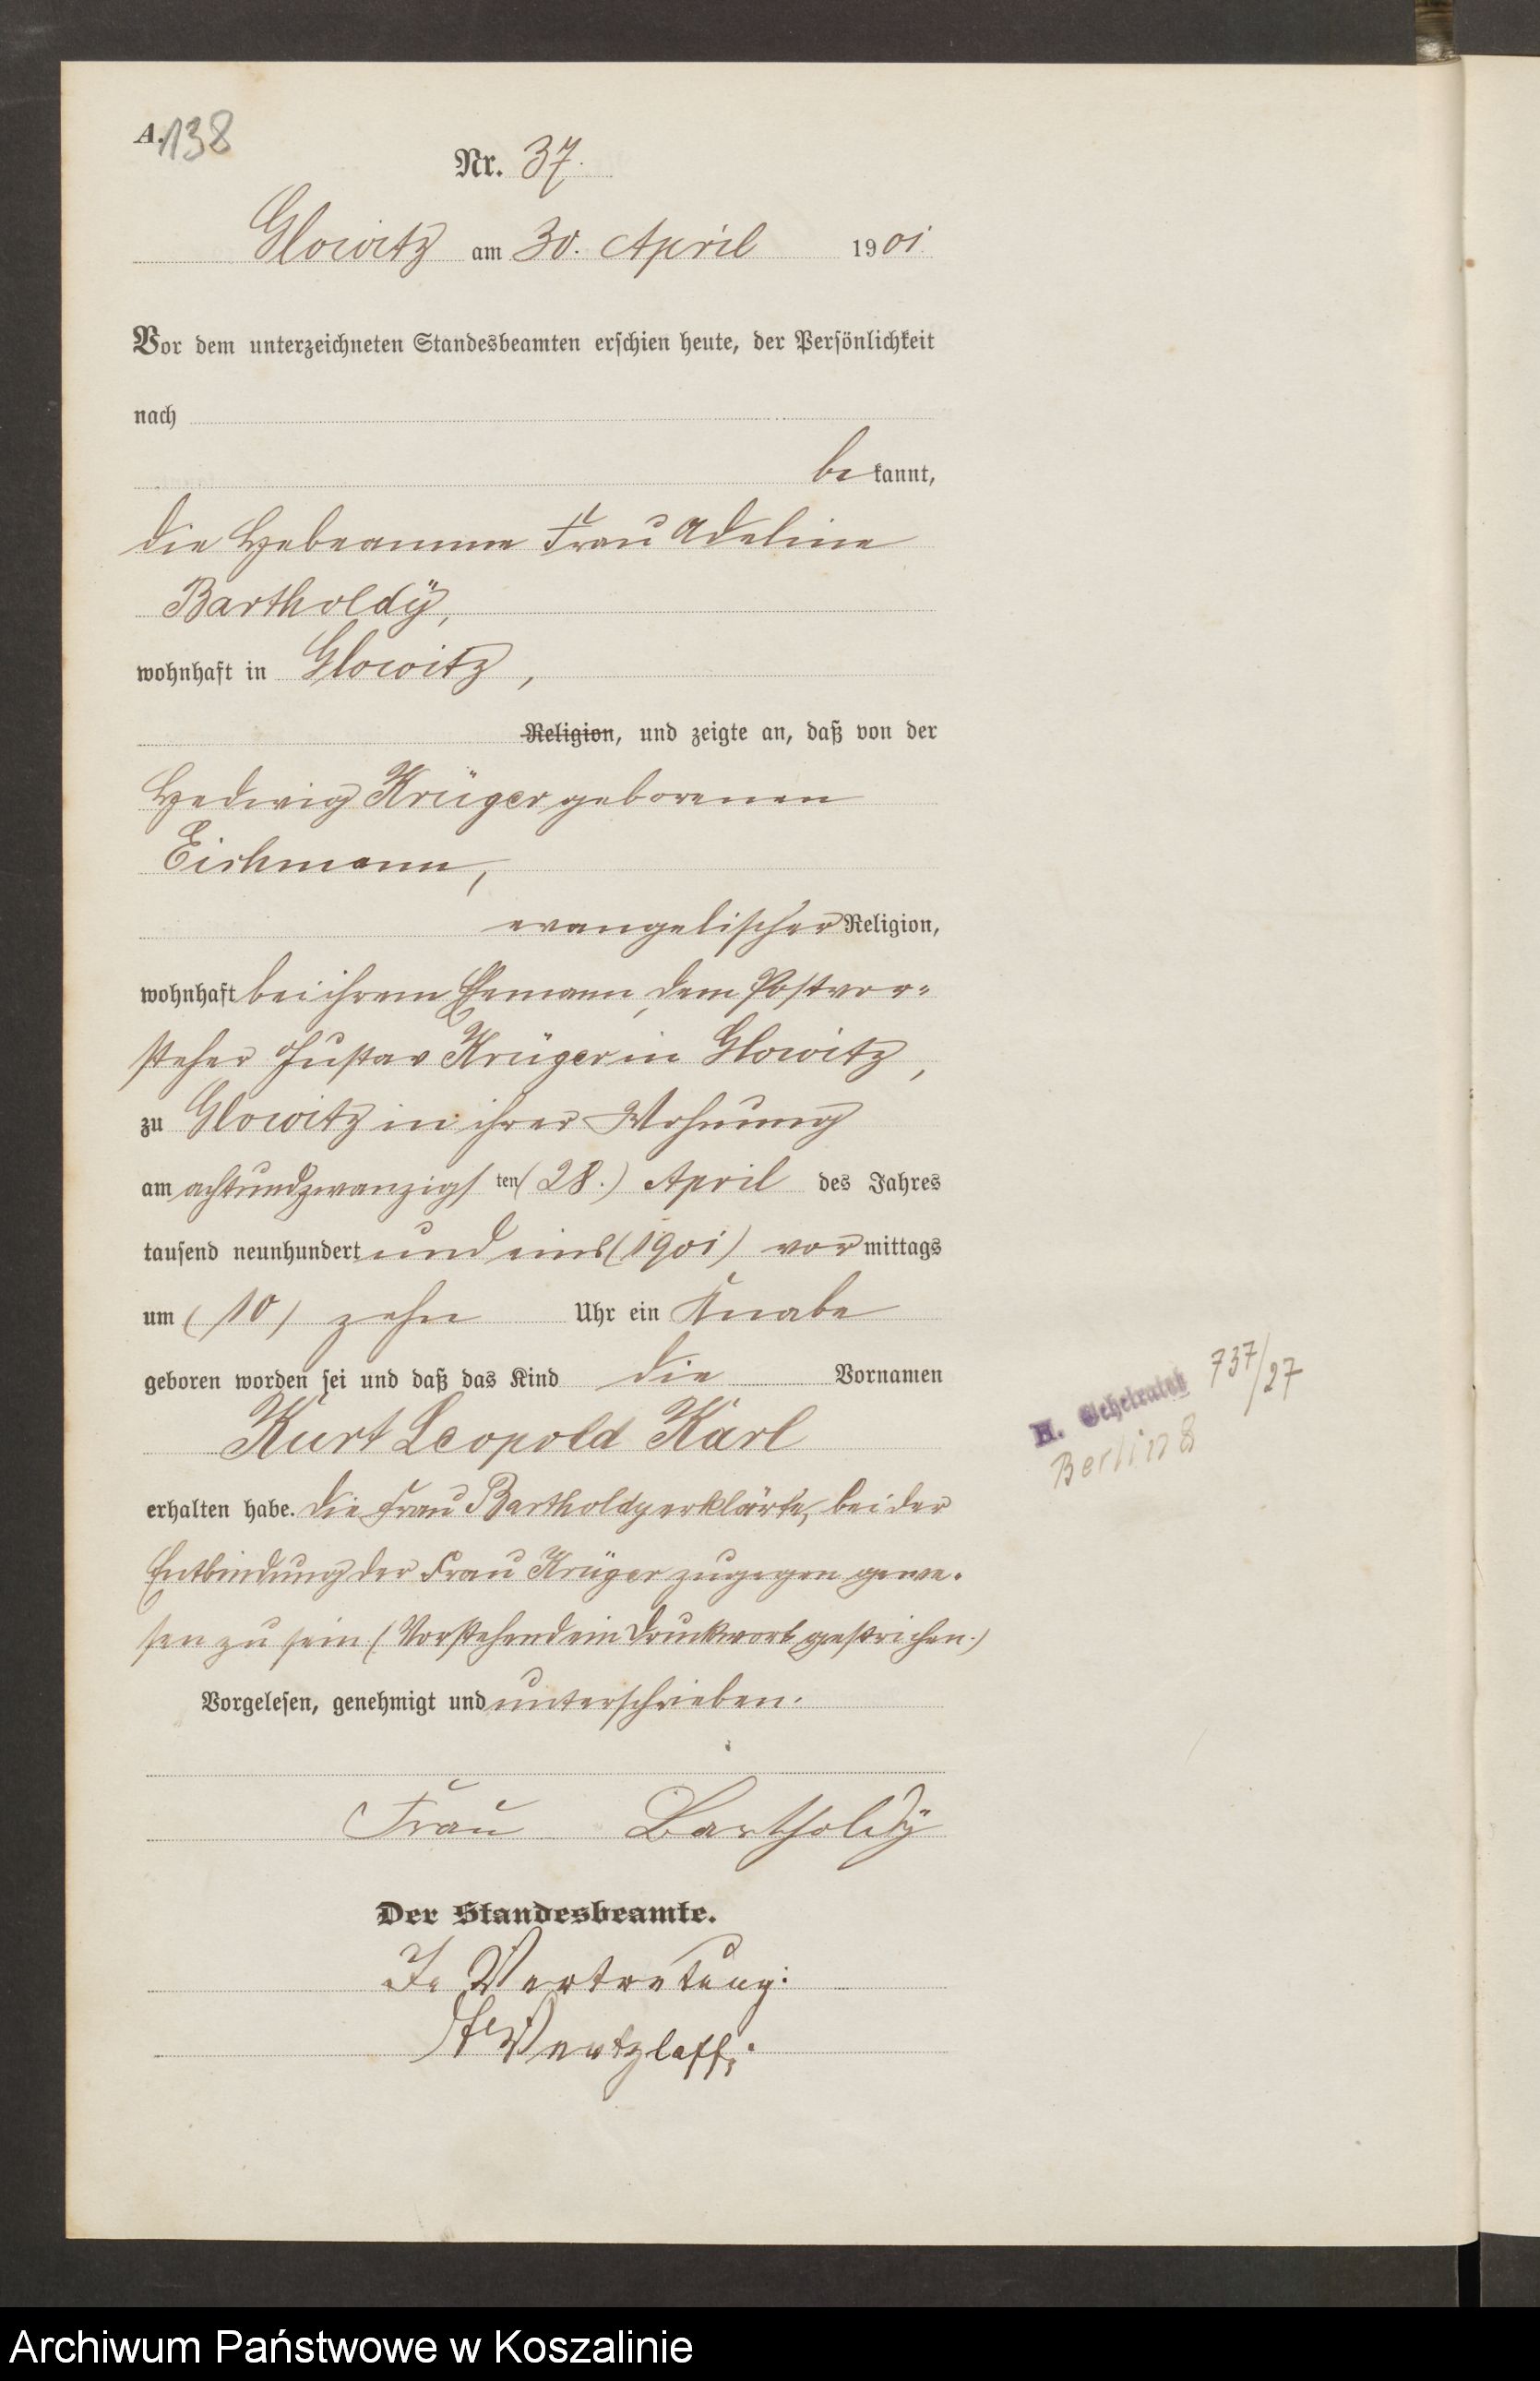 A. 138
Nr. 37.
Glowitz am 30. April 1901
Vor dem unterzeichneten Standesbeamten erschien heute, der Persönlichkeit
nach
bekannt,
die Hebeamme Frau Adeline
Bartholdÿ,
wohnhaft in Glowitz,
Religion, und zeigte an, daß von der
Hedwig Krüger geborenen
Eichmann,
evangelischer Religion,
wohnhaft bei ihrem Ehemann, dem Postvor-
steher Gustav Krüger in Glowitz,
zu Glowitz in ihrer Wohnung
am achtundzwanzigsten (28.) April des Jahres
tausend neunhundert und eins (1901) vormittags
um (10) zehn Uhr ein Knabe
geboren worden sei und daß das Kind die Vornamen
Kurt Leopold Karl
erhalten habe. Die Frau Bartholdy erklärte, bei der
Entbindung der Frau Krüger zugegen gewe-
sen zu sein (Vorstehend ein Druckwort gestrichen.)
Vorgelesen, genehmigt und unterschrieben.
Frau Bartholdÿ
Der Standesbeamte.
In Vertretung:
Wentzlaff.
H. 737/27
Berlin 8
Archiwum Państwowe w Koszalinie